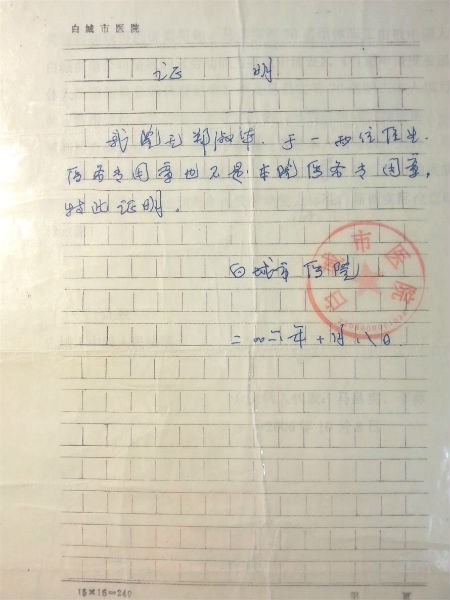 白城市医院
证 明
我院无郑淑华、于一两位医生.
医务专用章也不是本院医务专用章,
特此证明。
白城市医院
白城市医院
二〇〇六年十月八日
15×16=240